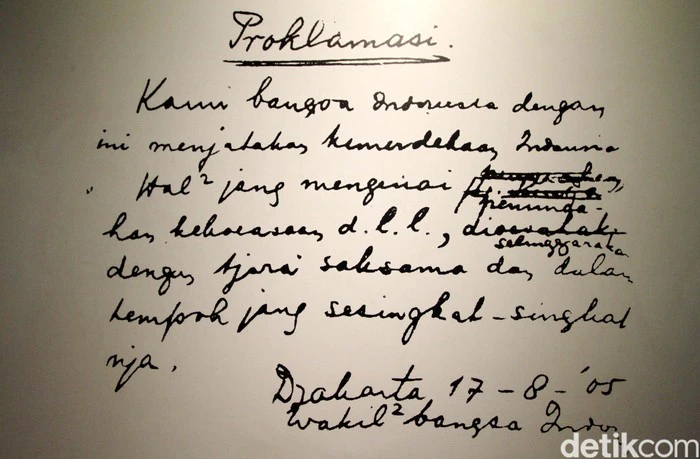 Proklamasi.
Kami bangsa Indonesia dengan
ini menjatakan kemerdekaan Indonesia
Hal² jang mengenai
peminda-
han kekoeasaan d.l.l., dioesahak
selenggarakan
dengan tjara saksama dan dalam
tempoh jang sesingkat-singkat
nja.
Djakarta 17-8-'05
Wakil² bangsa Indon.
detikcom